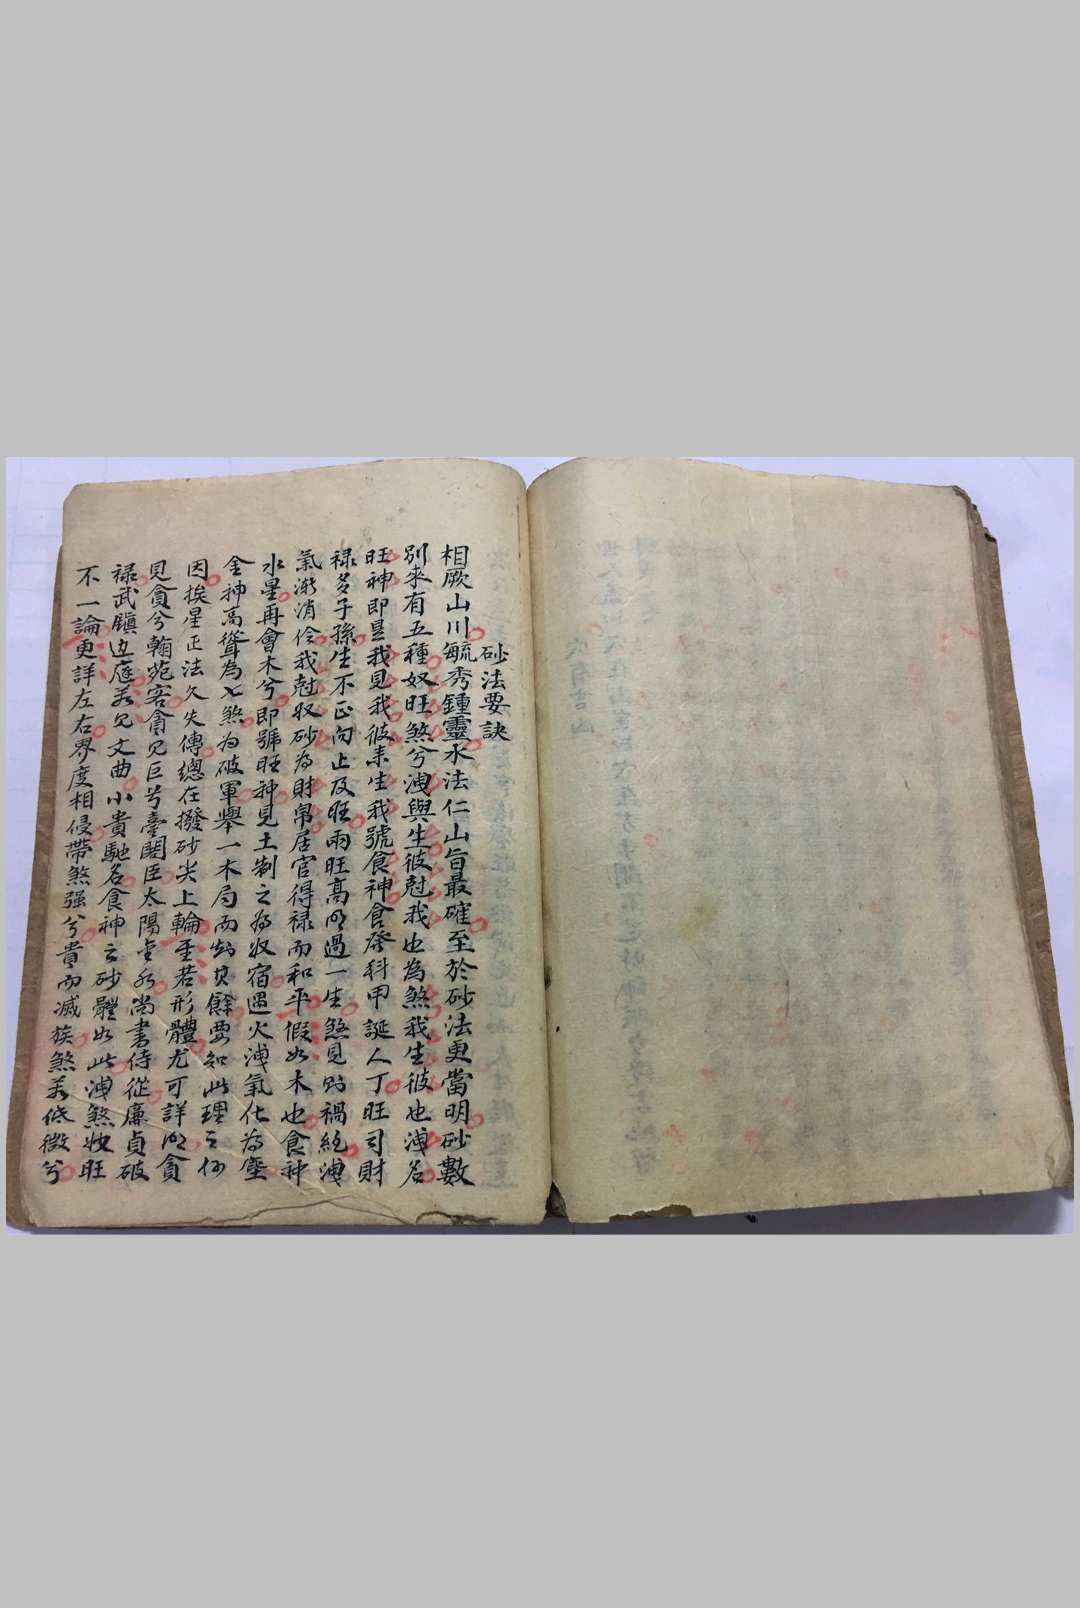 砂法要訣
相厥山川毓秀鍾靈水法仁山旨最確至於砂法更當明砂數
別來有五種奴旺煞兮洩與生彼尅我也為煞我生彼也洩名
旺神即是我見我彼来生我號食神食發科甲誕人丁旺司財
禄多子孫生不正向止及旺兩旺高明過一生煞見則禍絕洩
氣漸消伶我尅奴砂為財帛居官得禄而和平假如木也食神
水星再會木兮即號旺神見土制之為奴宿遇火洩氣化為塵
金神高聳為七煞為破軍舉一木局而知其餘要知此理之何
因挨星正法久失傳總在撥砂尖上輪重若形體尤可詳明貪
見貪兮翰苑客貪見巨兮臺閣臣太陽金水尚書侍從廉貞破
禄武鎮边庭若見文曲小貴馳名食神之砂體如此洩煞奴旺
不一論更詳左右界度相侵帶煞强兮貴而滅族煞若低微兮